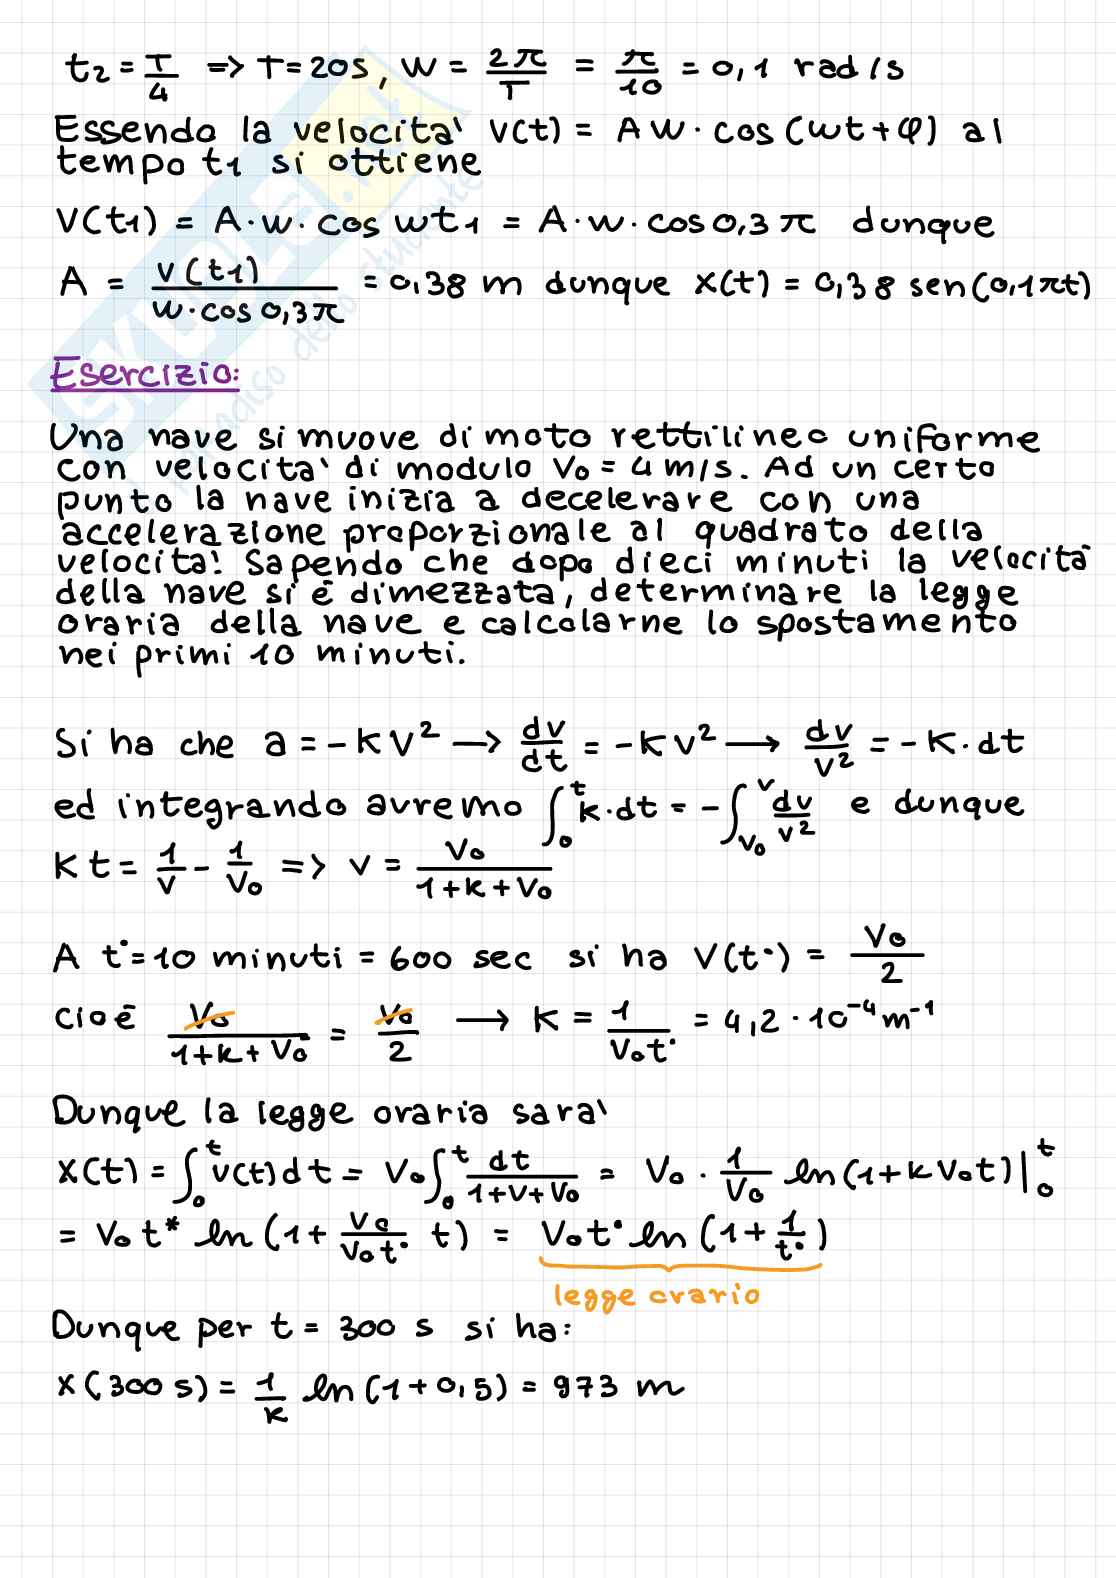 t₂ = T/4 => T = 20s, W = 2π/T = π/10 = 0,1 rad/s
Essendo la velocita' V(t) = AW·cos(Wt+φ) al
tempo t₁ si ottiene
V(t₁) = A·w·cos wt₁ = A·w·cos 0,3π dunque
A = v(t₁)/(w·cos 0,3π) = 0,38 m dunque x(t) = 0,38 sen(0,1πt)
Esercizio:
Una nave si muove di moto rettilineo uniforme
con velocita' di modulo V₀ = 4 m/s. Ad un certo
punto la nave inizia a decelerare con una
accelerazione proporzionale al quadrato della
velocita'. Sapendo che dopo dieci minuti la velocità
della nave si è dimezzata, determinare la legge
oraria della nave e calcolarne lo spostamento
nei primi 10 minuti.
Si ha che a = -KV² → dv/dt = -KV² → dv/V² = -K·dt
ed integrando avremo ∫₀ᵗ k·dt = -∫ᵥ₀ᵛ dv/v² e dunque
Kt = 1/V - 1/V₀ => V = V₀/(1+k+V₀)
A t• = 10 minuti = 600 sec si ha V(t•) = V₀/2
cioè V₀/(1+k+V₀) = V₀/2 → K = 1/(V₀t•) = 4,2·10⁻⁴ m⁻¹
Dunque la legge oraria sara'
X(t) = ∫₀ᵗ v(t)dt = V₀∫₀ᵗ dt/(1+V+V₀) = V₀·1/V₀ ln(1+kV₀t)|₀ᵗ
= V₀t* ln(1 + V₀/(V₀t•) t) = V₀t• ln(1 + 1/t•)
legge orario
Dunque per t = 300 s si ha:
X(300 s) = 1/k ln(1+0,5) = 973 m
SKUOLA.net